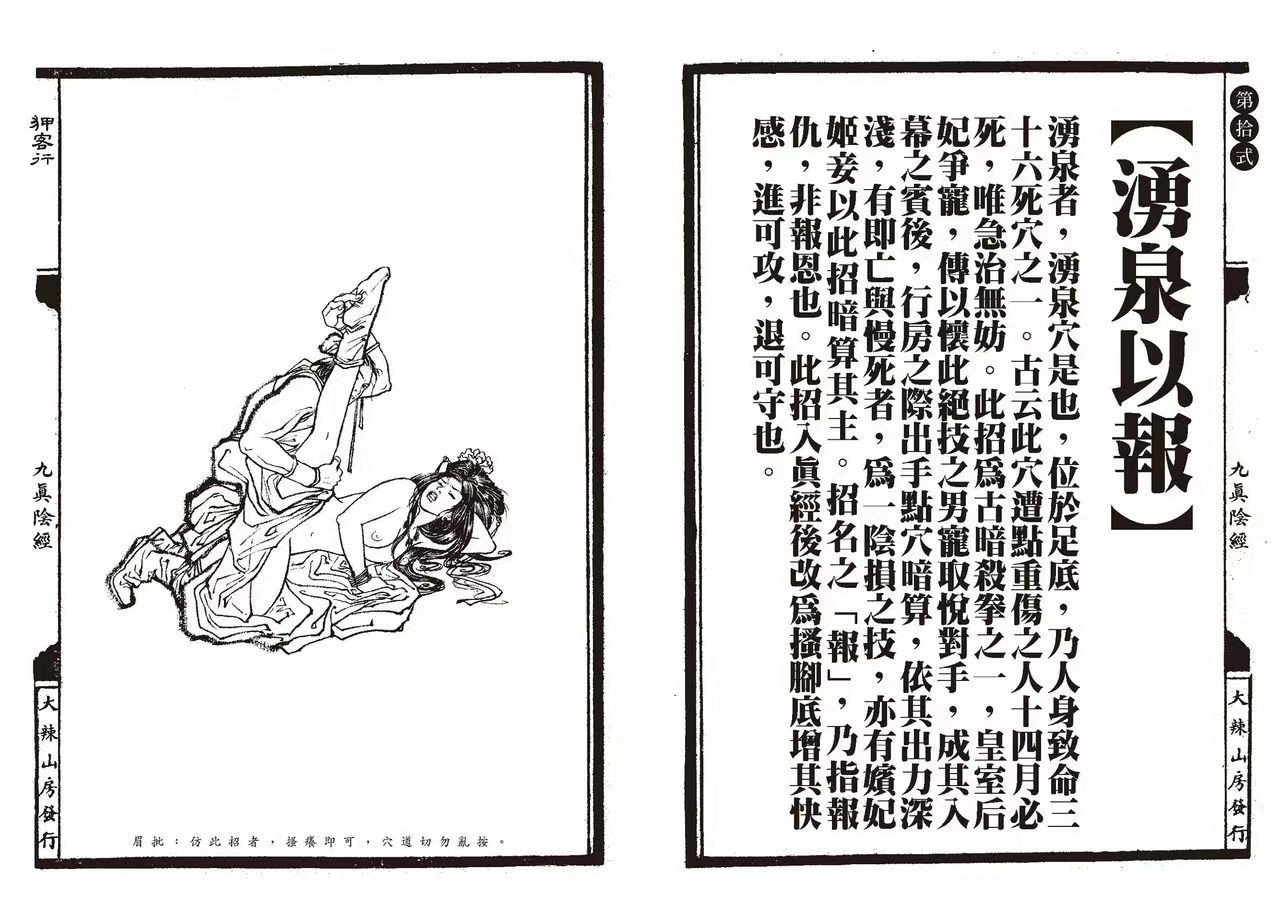 第拾式
【湧泉以報】
湧泉者，湧泉穴是也，位於足底，乃人身致命三
十六死穴之一。古云此穴遭點重傷之人十四月必
死，唯急治無妨。此招爲古暗殺拳之一，皇室后
妃爭寵，傳以懷此絕技之男寵取悅對手，成其入
幕之賓後，行房之際出手點穴暗算，依其出力深
淺，有即亡與慢死者，爲一陰損之技，亦有嬪妃
姬妾以此招暗算其主。招名之「報」，乃指報
仇，非報恩也。此招入眞經後改爲搔腳底增其快
感，進可攻，退可守也。
九眞陰經
大辣山房發行
狎客行
九眞陰經
大辣山房發行
眉批：仿此招者，搔癢即可，穴道切勿亂按。